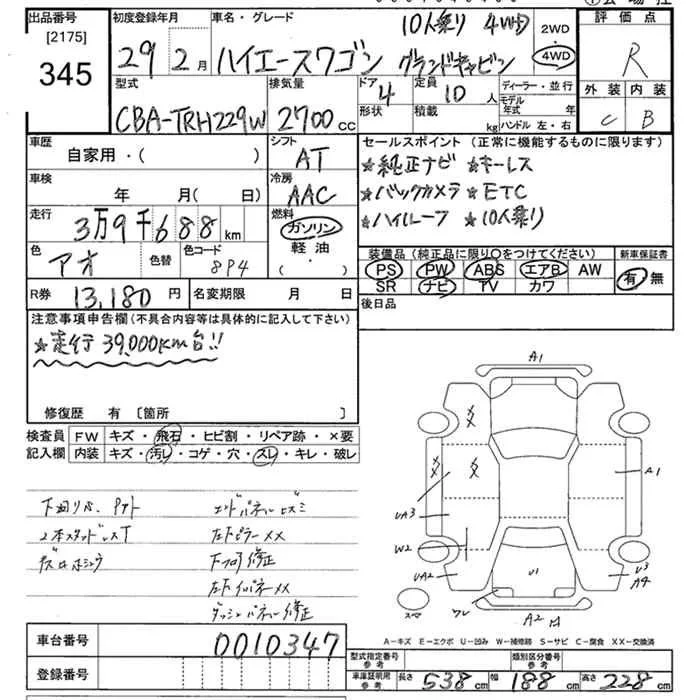 出品番号
[2175]
345
初度登録年月
29年2月
車名・グレード
10人乗り 4WD
ハイエースワゴン グランドキャビン
2WD
4WD
評価点
R
外装 内装
C B
型式
CBA-TRH229W
排気量
2700cc
ドア
4
形状
定員
10人
積載
kg
ディーラー・並行
モデル年式 年
ハンドル 左・右
車歴
自家用・( )
シフト
AT
車検
年 月(日)
冷房
AAC
走行
3万9千688km
燃料
ガソリン
軽油
( ・ )
色
アオ
色替
色コード
8P4
R券 13,180円
名変期限 月 日
セールスポイント(正常に機能するものに限ります)
★純正ナビ ★キーレス
★バックカメラ ★ETC
★ハイルーフ ★10人乗り
装備品(純正品に限り○をつけてください)
PS PW ABS エアB AW
SR ナビ TV カワ
新車保証書
有 無
後日品
注意事項申告欄(不具合内容等は具体的に記入して下さい)
★走行39,000km台!!
修復歴 有〔箇所 〕
検査員記入欄
FW キズ・飛石・ヒビ割・リペア跡・×要
内装 キズ・汚レ・コゲ・穴・スレ・キレ・破レ
2本スタッドレスT
エンドパネルヒズミ
左Fピラー××
左Fフロア修正
左Fインパネ××
ダッシュパネル修正
A1
A1
UA3
W2
UA2
U1
U3
A4
ワレ
A2
スペア
A－キズ E－エクボ U－凹み W－補修跡 S－サビ C－腐食 XX－交換済
車台番号 0010347
登録番号
型式指定番号 参考
類別区分番号 参考
車庫証明用 参考
長さ 538cm 幅 188cm 高さ 228cm